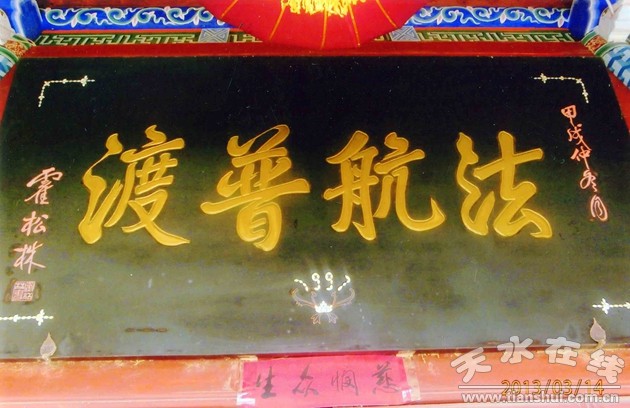 甲戌仲冬月
法航普渡
霍松林
慈悯众生
天水在线
2013/03/14
www.tianshui.com.cn